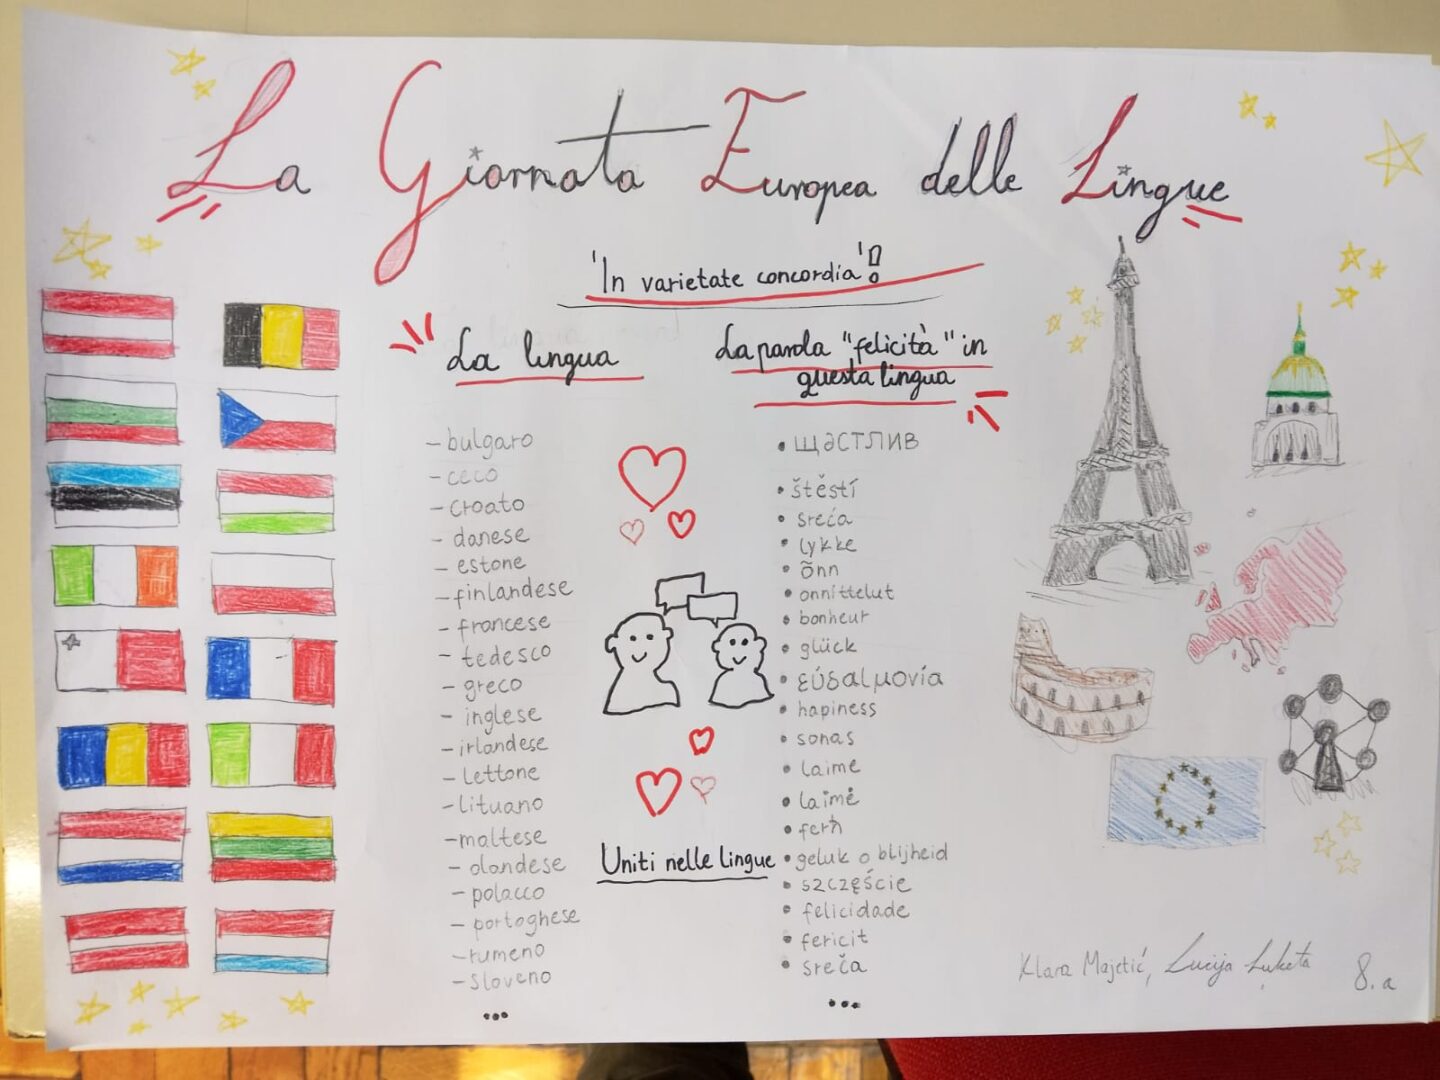 La Giornata Europea delle Lingue
'In varietate concordia'!
La lingua
- bulgaro
- ceco
- croato
- danese
- estone
- finlandese
- francese
- tedesco
- greco
- inglese
- irlandese
- lettone
- lituano
- maltese
- olandese
- polacco
- portoghese
- rumeno
- sloveno
...
La parola "felicità" in
questa lingua
• щастлив
• štěstí
• sreća
• lykke
• õnn
• onnittelut
• bonheur
• glück
• εύδαιμονία
• hapiness
• sonas
• laime
• laimė
• ferħ
• geluk o blijheid
• szczęście
• felicidade
• fericit
• sreča
...
Uniti nelle lingue
Klara Majetić, Lucija Luketa 8.a